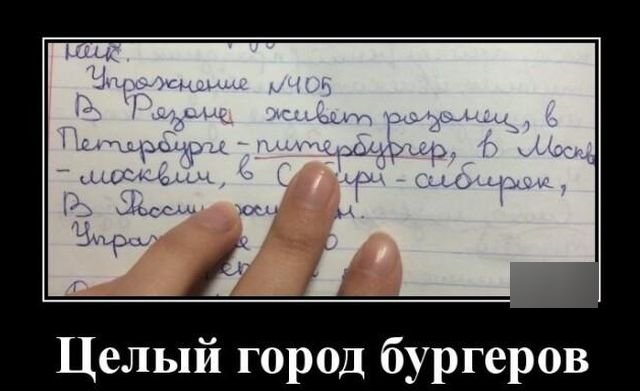 ник.
Упражнение №405
В Рязане живёт рязанец, в
Петербурге - питербургер, в Москв
- москвич, в С ири - сибиряк,
В России жи н.
Упра
Целый город бургеров